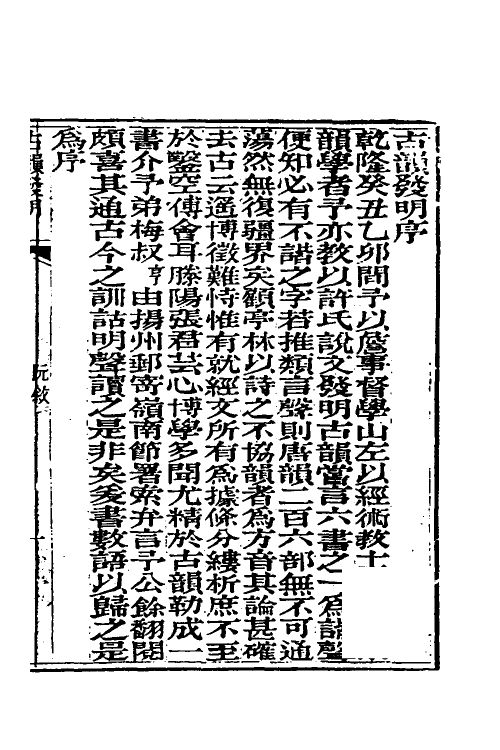 古韻發明序
乾隆癸丑乙卯閒予以詹事督學山左以經術教士
韻學者予亦教以許氏說文發明古韻嘗言六書之一爲諧聲
便知必有不諧之字若推類言聲則唐韻二百六部無不可通
蕩然無復疆界矣顧亭林以詩之不協韻者爲方音其論甚確
去古云遙博徵難恃惟有就經文所有爲據條分縷析庶不至
於鑿空傅會耳滕陽張君芸心博學多聞尤精於古韻勒成一
書介予弟梅叔亨由揚州郵寄嶺南節署索弁言予公餘翻閱
頗喜其通古今之訓詁明聲讀之是非矣爰書數語以歸之是
爲序
古韻發明
阮敘
一